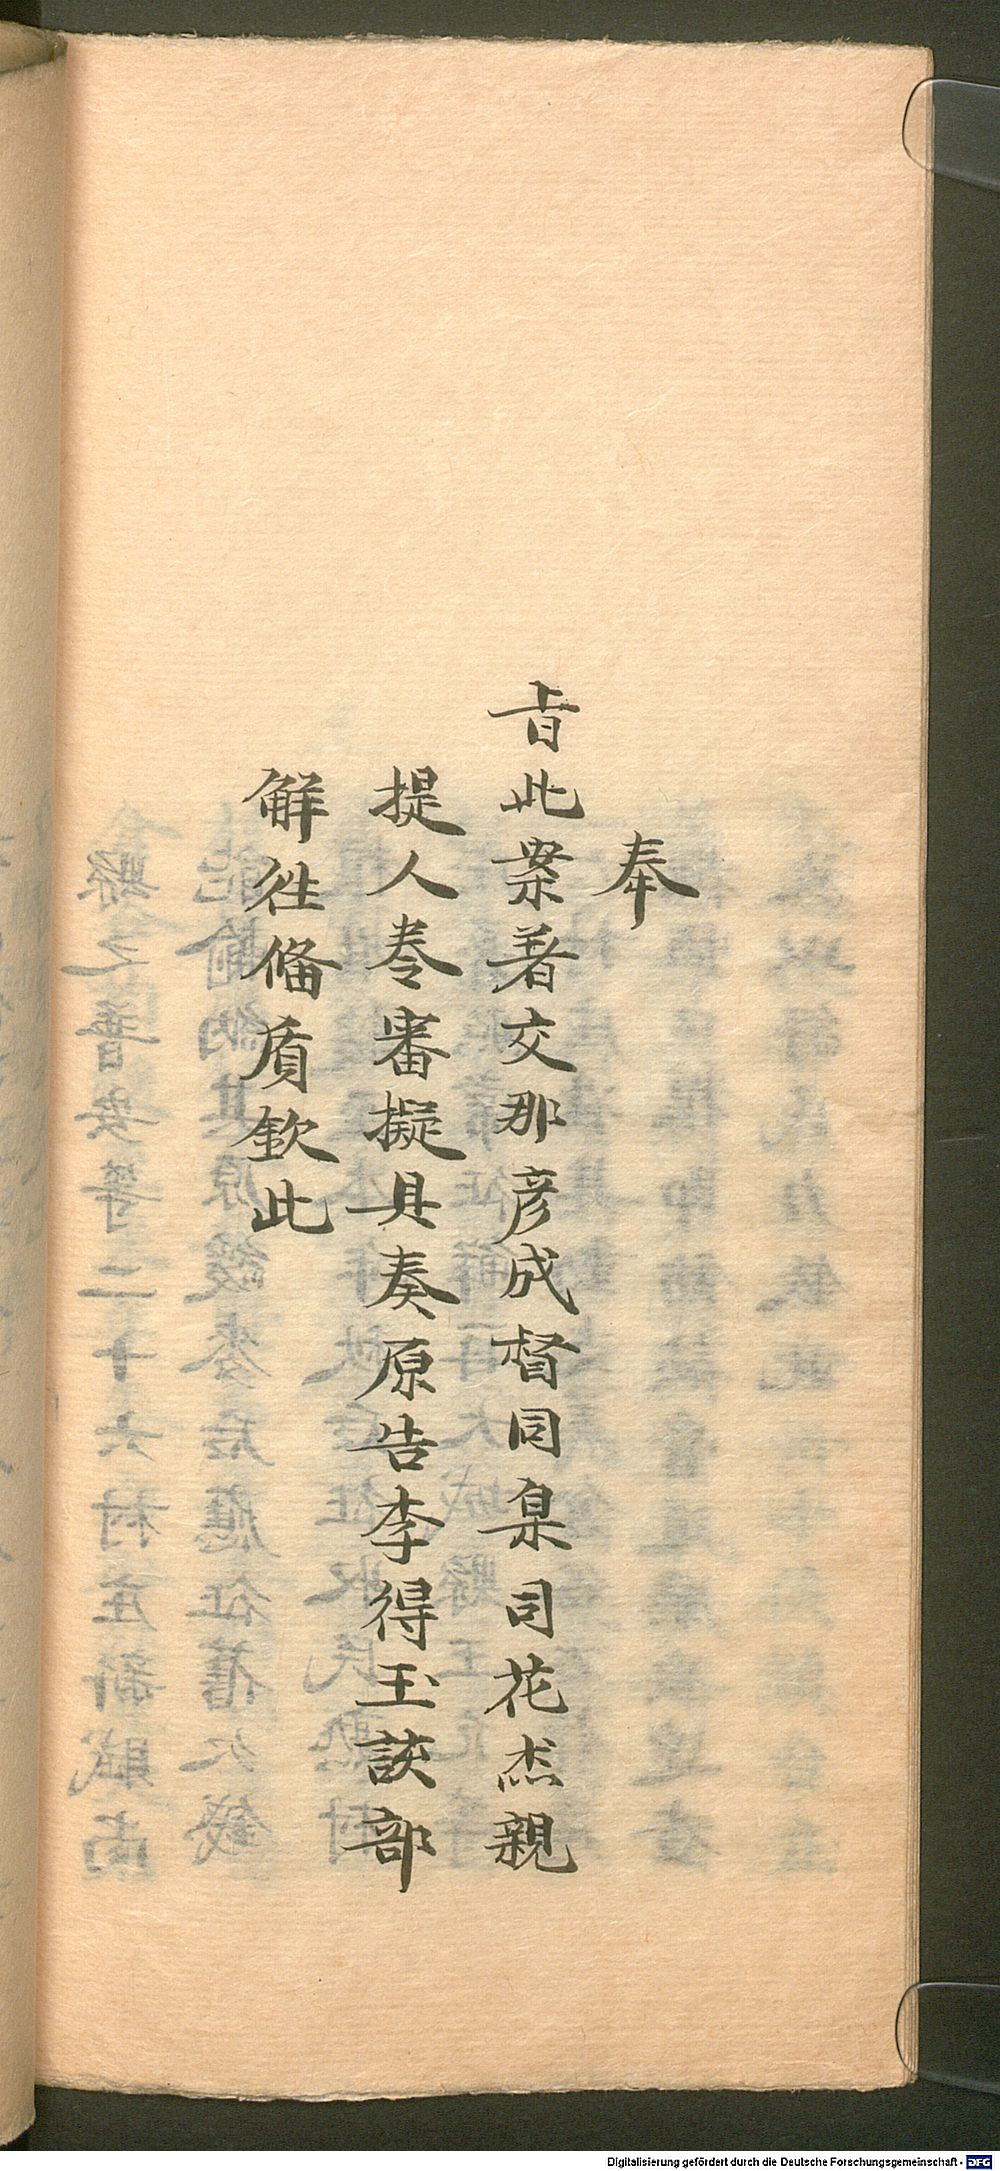 奉
旨此案著交那彦成督同臬司花杰親
提人卷審擬具奏原告李得玉該部
解往俻质欽此
Digitalisierung gefördert durch die Deutsche Forschungsgemeinschaft - DFG